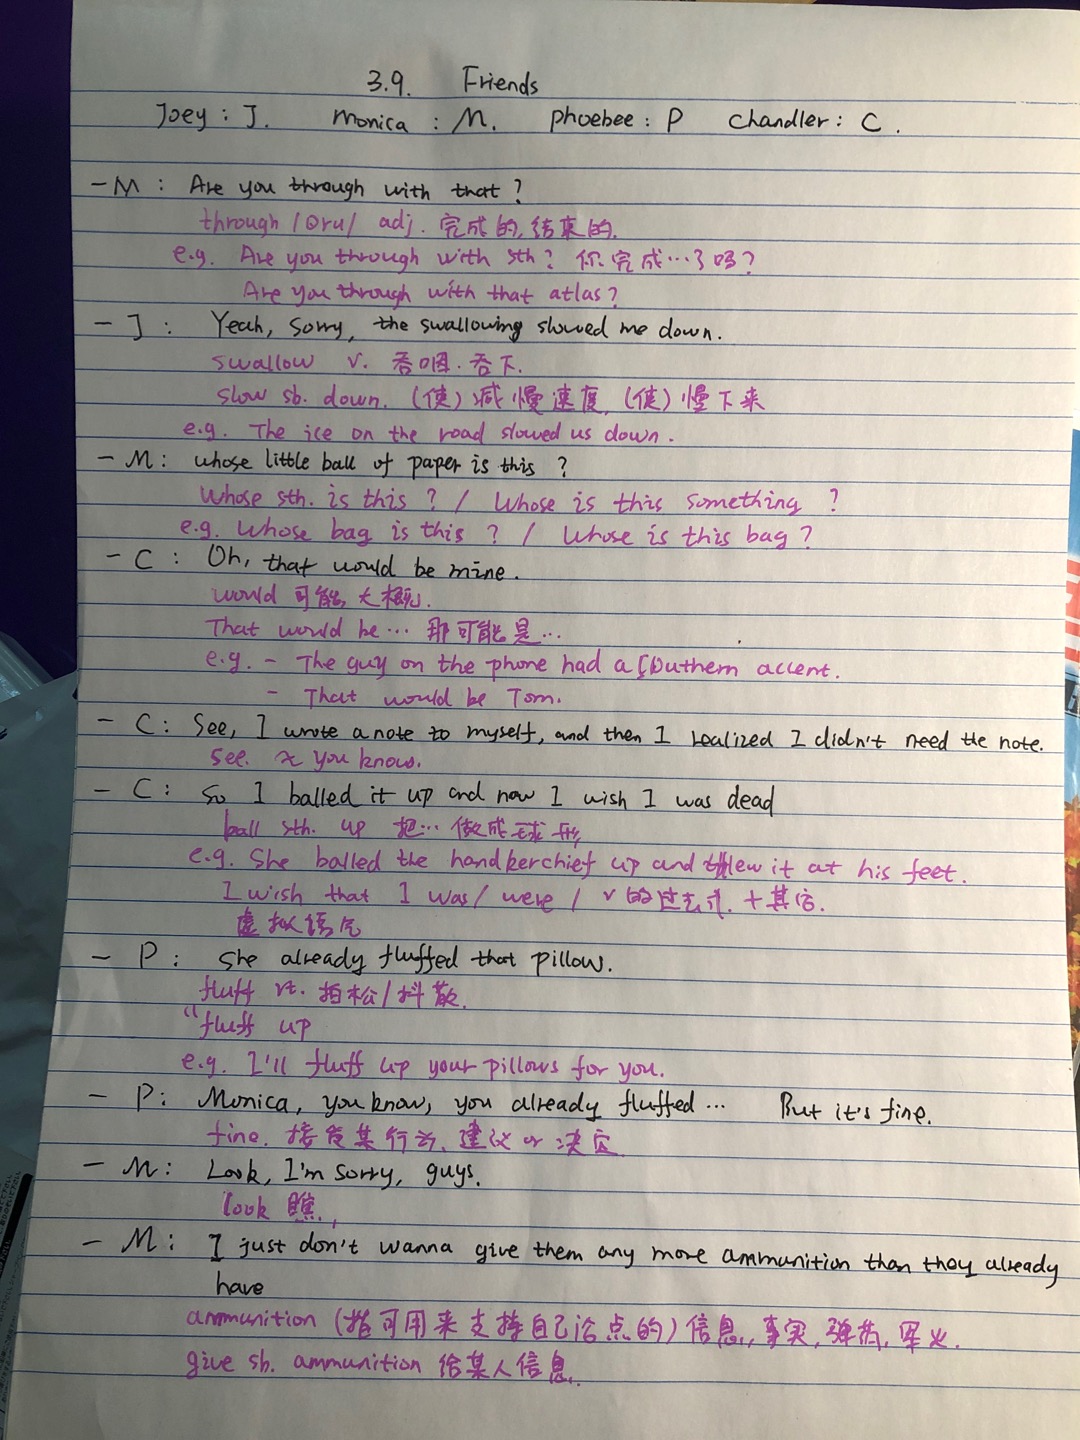 3.9. Friends
Joey : J. Monica : M. phoebee : P chandler : C.
- M : Are you through with that ?
through /θru/ adj. 完成的, 结束的.
e.g. Are you through with sth ? 你完成…了吗?
Are you through with that atlas?
- J : Yeah, sorry, the swallowing slowed me down.
swallow v. 吞咽. 吞下.
slow sb. down. (使) 减慢速度, (使) 慢下来
e.g. The ice on the road slowed us down.
- M : whose little ball of paper is this ?
Whose sth. is this ? / Whose is this something ?
e.g. Whose bag is this ? / Whose is this bag ?
- C : Oh, that would be mine.
would 可能, 大概.
That would be … 那可能是…
e.g. - The guy on the phone had a Southern accent.
- That would be Tom.
- C : See, I wrote a note to myself, and then I realized I didn't need the note.
see. ≈ you know.
- C : so I balled it up and now I wish I was dead
ball sth. up 把… 做成球形
e.g. She balled the handkerchief up and threw it at his feet.
I wish that I was / were / v 的过去式. + 其它.
虚拟语气
- P : she already fluffed that pillow.
fluff vt. 拍松/抖散.
"fluff up
e.g. I'll fluff up your pillows for you.
- P : Monica, you know, you already fluffed … But it's fine.
fine. 接受某行为、建议 or 决定
- M : Look, I'm sorry, guys.
look 瞧,
- M : I just don't wanna give them any more ammunition than they already
have
ammunition (指可用来支持自己论点的) 信息, 事实, 弹药, 军火.
give sb. ammunition 给某人信息.